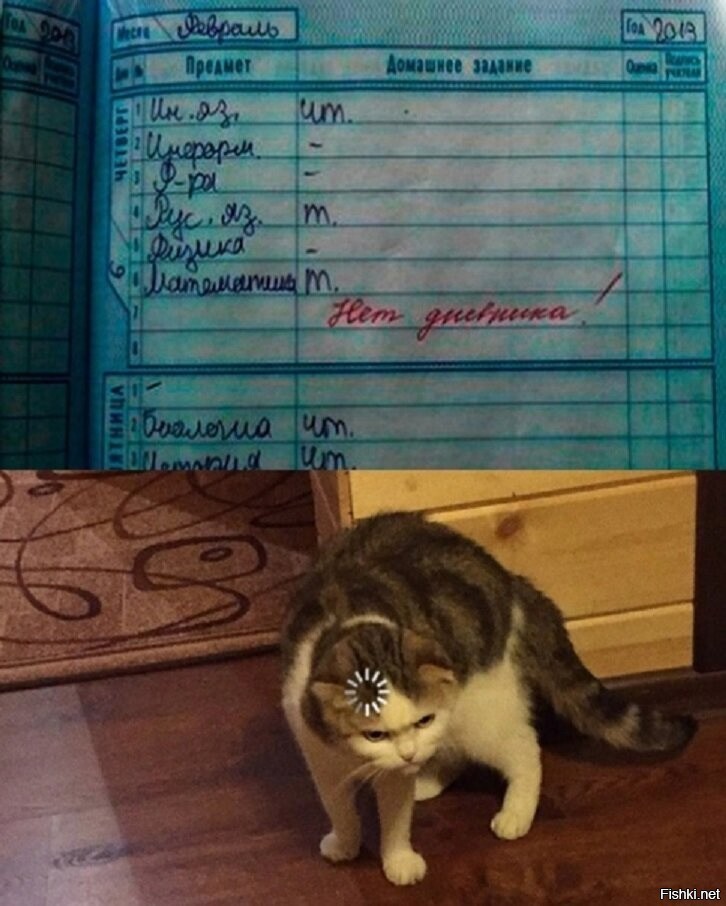 Год 2013 Месяц Февраль Год 2013
Оценка Подпись учителя Дни № Предмет Домашнее задание Оценка Подпись учителя
ЧЕТВЕРГ
1 Ин. яз. чт.
2 Информ. -
3 Ф-ра -
4 Рус. яз. т.
5 Физика -
6 6 Математика т.
7 Нет дневника!
8
ПЯТНИЦА
1 -
2 Биология чт.
3 История чт.
Fishki.net